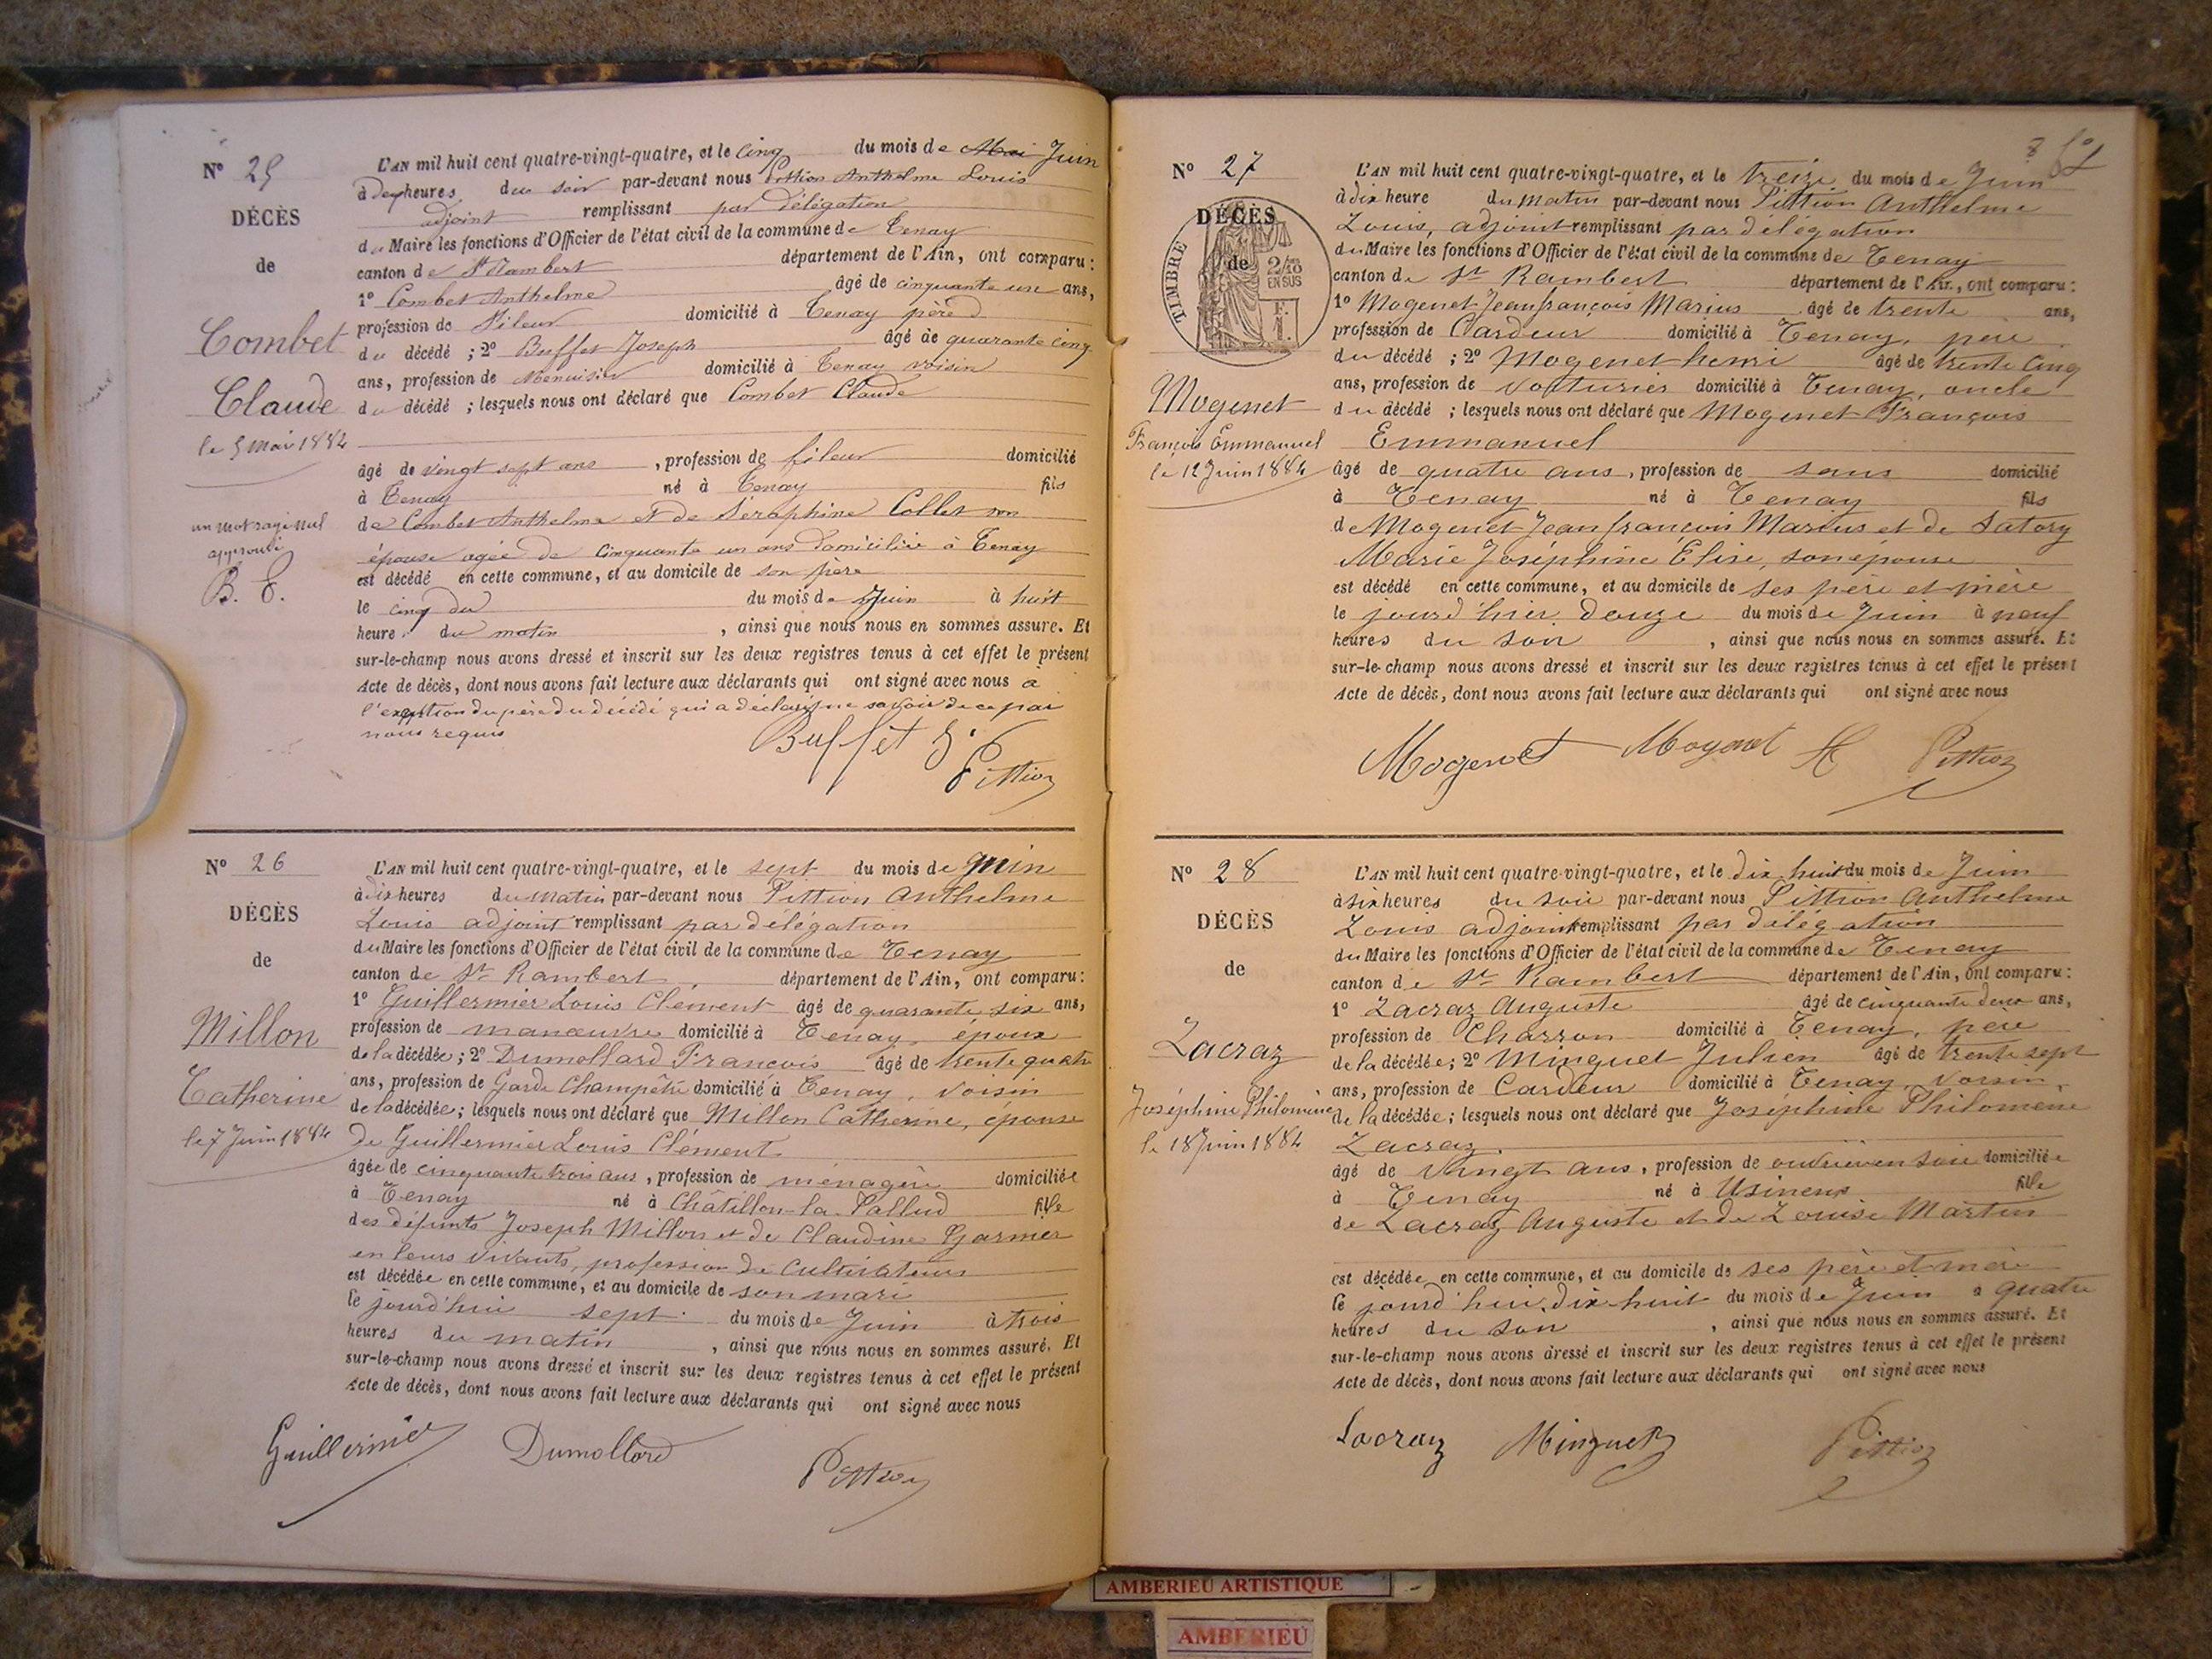 N° 25
DÉCÈS
de
Combet
Claude
le 5 Mai 1884
un mot rayé nul
approuvé
B. T.
L'AN mil huit cent quatre-vingt-quatre, et le Cinq du mois de Mai Juin
à deux heures du soir par-devant nous Pittion Anthelme Louis
adjoint remplissant par délégation
du Maire les fonctions d'Officier de l'état civil de la commune de Tenay
canton de St Rambert département de l'Ain, ont comparu :
1° Combet Anthelme âgé de cinquante un ans,
profession de Fileur domicilié à Tenay père
du décédé ; 2° Buffet Joseph âgé de quarante cinq
ans, profession de Menuisier domicilié à Tenay voisin
du décédé ; lesquels nous ont déclaré que Combet Claude
âgé de vingt sept ans , profession de fileur domicilié
à Tenay né à Tenay fils
de Combet Anthelme et de Séraphine Collet son
épouse agée de cinquante un ans domiciliée à Tenay
est décédé en cette commune, et au domicile de son père
le cinq du du mois de Juin à huit
heure du matin , ainsi que nous nous en sommes assuré. Et
sur-le-champ nous avons dressé et inscrit sur les deux registres tenus à cet effet le présent
Acte de décès, dont nous avons fait lecture aux déclarants qui ont signé avec nous a
l'exeption du père du décédé qui a déclaré ne savoir de ce par
nous requis
Buffet J. Pittion
N° 26
DÉCÈS
de
Millon
Catherine
le 7 Juin 1884
L'AN mil huit cent quatre-vingt-quatre, et le sept du mois de Juin
à dix heures du matin par-devant nous Pittion Anthelme
Louis adjoint remplissant par délégation
du Maire les fonctions d'Officier de l'état civil de la commune de Tenay
canton de St Rambert département de l'Ain, ont comparu :
1° Guillermier Louis Clément âgé de quarante six ans,
profession de manœuvre domicilié à Tenay, époux
de la décédée ; 2° Dumollard François âgé de trente quatre
ans, profession de Garde Champêtre domicilié à Tenay, voisin
de la décédée ; lesquels nous ont déclaré que Millon Catherine, épouse
de Guillermier Louis Clément
âgée de cinquante trois ans , profession de ménagère domiciliée
à Tenay né à Châtillon-la-Pallud fille
des défunts Joseph Millon et de Claudine Garnier
en leurs vivants, profession de Cultivateurs
est décédée en cette commune, et au domicile de son mari
le jourd'hui sept du mois de Juin à trois
heures du matin , ainsi que nous nous en sommes assuré. Et
sur-le-champ nous avons dressé et inscrit sur les deux registres tenus à cet effet le présent
Acte de décès, dont nous avons fait lecture aux déclarants qui ont signé avec nous
Guillermier Dumollard Pittion
N° 27
DÉCÈS
de
TIMBRE
2/10
EN SUS
Mogenet
François Emmanuel
le 12 Juin 1884
L'AN mil huit cent quatre-vingt-quatre, et le treize du mois de Juin
à dix heure du matin par-devant nous Pittion Anthelme
Louis, adjoint remplissant par délégation
du Maire les fonctions d'Officier de l'état civil de la commune de Tenay
canton de St Rambert département de l'Ain, ont comparu :
1° Mogenet Jean françois Marius âgé de trente ans,
profession de Cardeur domicilié à Tenay, père
du décédé ; 2° Mogenet henri âgé de trente cinq
ans, profession de voiturier domicilié à Tenay, oncle
du décédé ; lesquels nous ont déclaré que Mogenet François
Emmanuel
âgé de quatre ans , profession de sans domicilié
à Tenay né à Tenay fils
de Mogenet Jean françois Marius et de Satory
Marie Joséphine Élise, son épouse
est décédé en cette commune, et au domicile de ses père et mère
le jourd'hier douze du mois de Juin à neuf
heures du soir , ainsi que nous nous en sommes assuré. Et
sur-le-champ nous avons dressé et inscrit sur les deux registres tenus à cet effet le présent
Acte de décès, dont nous avons fait lecture aux déclarants qui ont signé avec nous
Mogenet Mogenet H Pittion
N° 28
DÉCÈS
de
Lacraz
Joséphine Philomène
le 18 Juin 1884
L'AN mil huit cent quatre-vingt-quatre, et le dix huit du mois de Juin
à six heures du soir par-devant nous Pittion Anthelme
Louis adjoint remplissant par délégation
du Maire les fonctions d'Officier de l'état civil de la commune de Tenay
canton de St Rambert département de l'Ain, ont comparu :
1° Lacraz Auguste âgé de cinquante deux ans,
profession de Charron domicilié à Tenay, père
de la décédée ; 2° Minguet Julien âgé de trente sept
ans, profession de Cardeur domicilié à Tenay, voisin,
de la décédée ; lesquels nous ont déclaré que Joséphine Philomène
Lacraz.
âgé de vingt ans , profession de ouvrière en soie domiciliée
à Tenay né à Usinens fille
de Lacraz Auguste et de Louise Martin
est décédée en cette commune, et au domicile de ses père et mère
le jourd'hui dix huit du mois de Juin à quatre
heures du soir , ainsi que nous nous en sommes assuré. Et
sur-le-champ nous avons dressé et inscrit sur les deux registres tenus à cet effet le présent
Acte de décès, dont nous avons fait lecture aux déclarants qui ont signé avec nous
Lacraz Minguet Pittion
AMBERIEU ARTISTIQUE
AMBERIEU